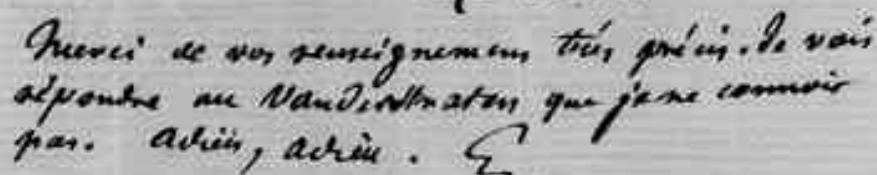 Merci de vos renseignemens très précis. Je vais
répondre au Vanderstraeten que je ne connais
pas. Adieu, adieu.